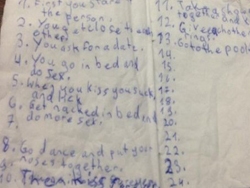 1. First you stare
the person.
2. You get close to each
other
3. You ask for a date.
4. You go in bed and
do sex.
5. When you kiss you suck
and lick
6. Get nacked in bed and
7. do more sex.
8. Go dance and put your
9. noses together.
10.
11. Take
together
12. Give each other
13. things
14. Go to the pool
15.
16.
17.
18.
19.
20.
21.
22.
23.
24.